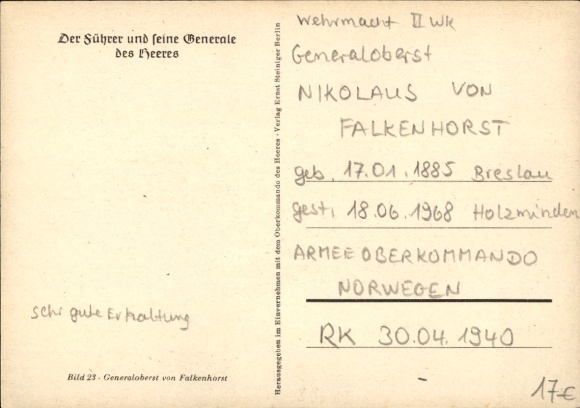 Der Führer und seine Generale
des Heeres
sehr gute Erhaltung
Bild 23 - Generaloberst von Falkenhorst
Herausgegeben im Einvernehmen mit dem Oberkommando des Heeres · Verlag Ernst Steiniger Berlin
Wehrmacht II WK
Generaloberst
NIKOLAUS VON
FALKENHORST
geb. 17.01.1885 Breslau
gest. 18.06.1968 Holzminden
ARMEEOBERKOMMANDO
NORWEGEN
RK 30.04.1940
17€